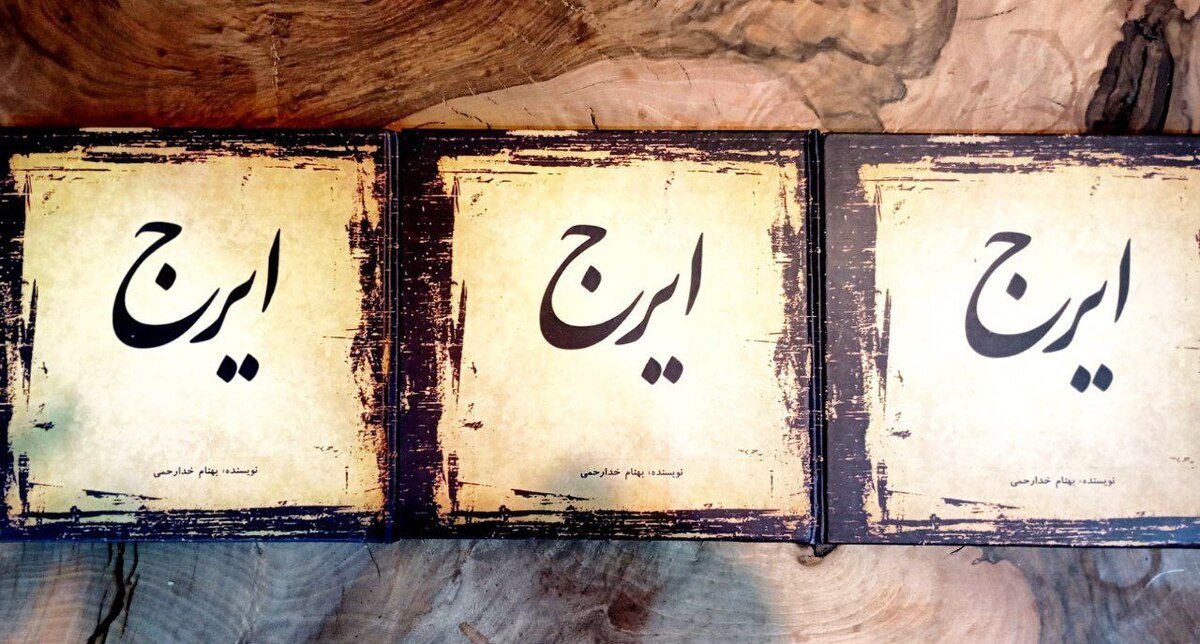 ایرج
نویسنده: بهنام خدارحمی
ایرج
نویسنده: بهنام خدارحمی
ایرج
نویسنده: بهنام خدارحمی